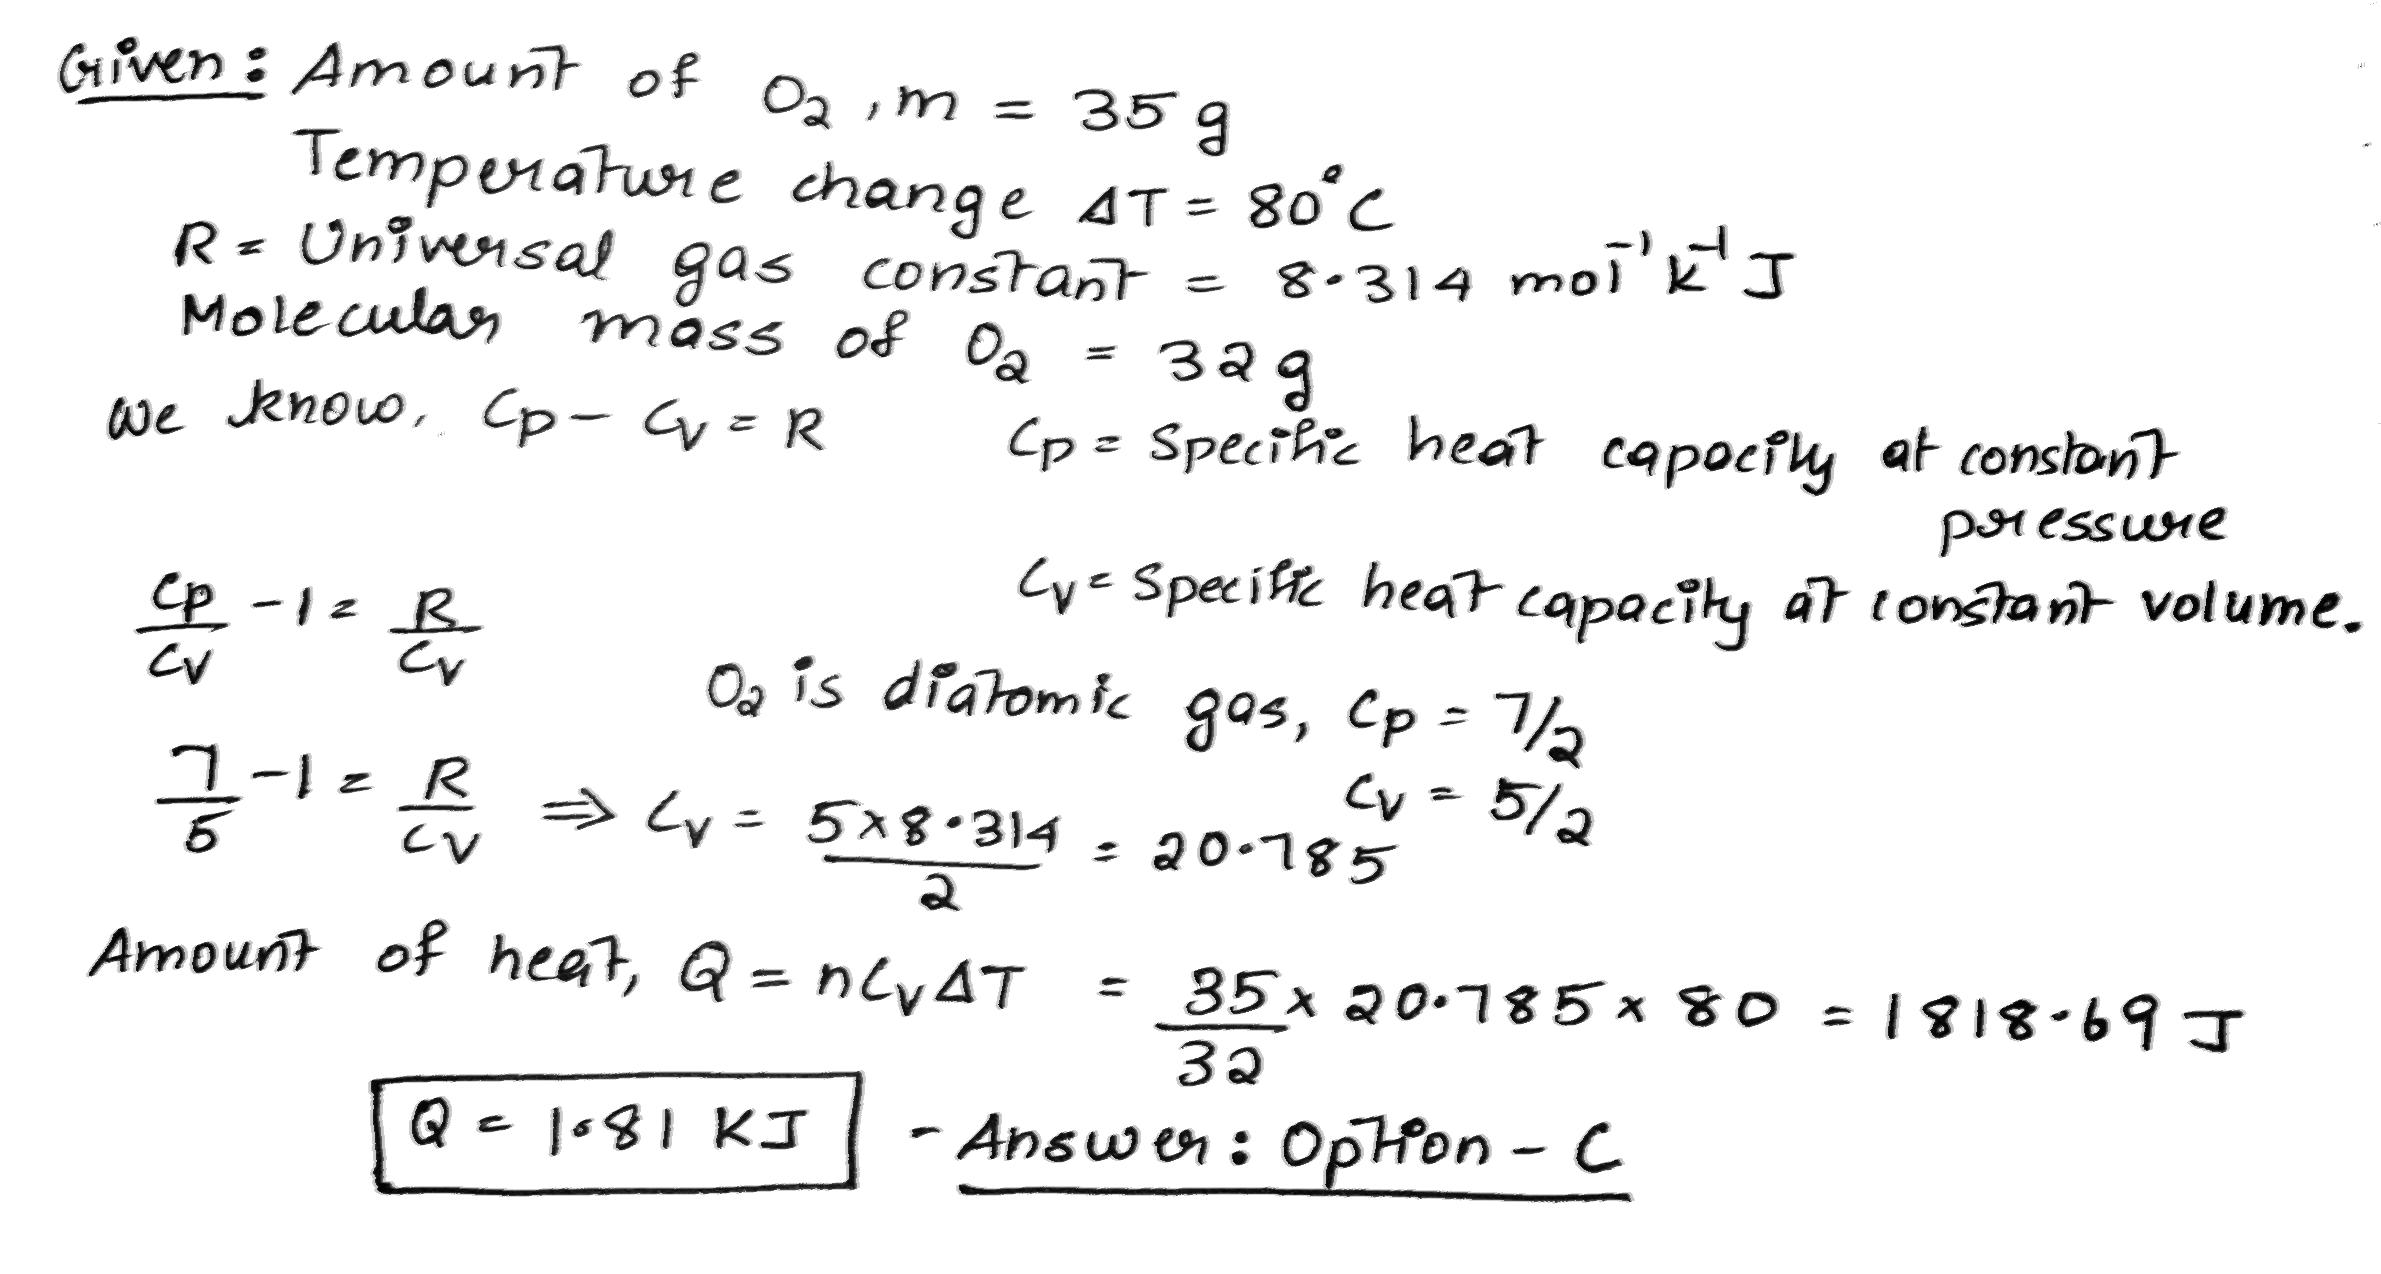 Given: Amount of O₂, m = 35 g
Temperature change ΔT = 80°C
R = Universal gas constant = 8.314 mol⁻¹ K⁻¹ J
Molecular mass of O₂ = 32 g
We know, Cp - Cv = R Cp = Specific heat capacity at constant
pressure
Cp/Cv - 1 = R/Cv Cv = Specific heat capacity at constant volume.
O₂ is diatomic gas, Cp = 7/2
Cv = 5/2
7/5 - 1 = R/Cv ⇒ Cv = 5×8.314/2 = 20.785
Amount of heat, Q = nCvΔT = 35/32 × 20.785 × 80 = 1818.69 J
Q = 1.81 KJ - Answer: Option - C